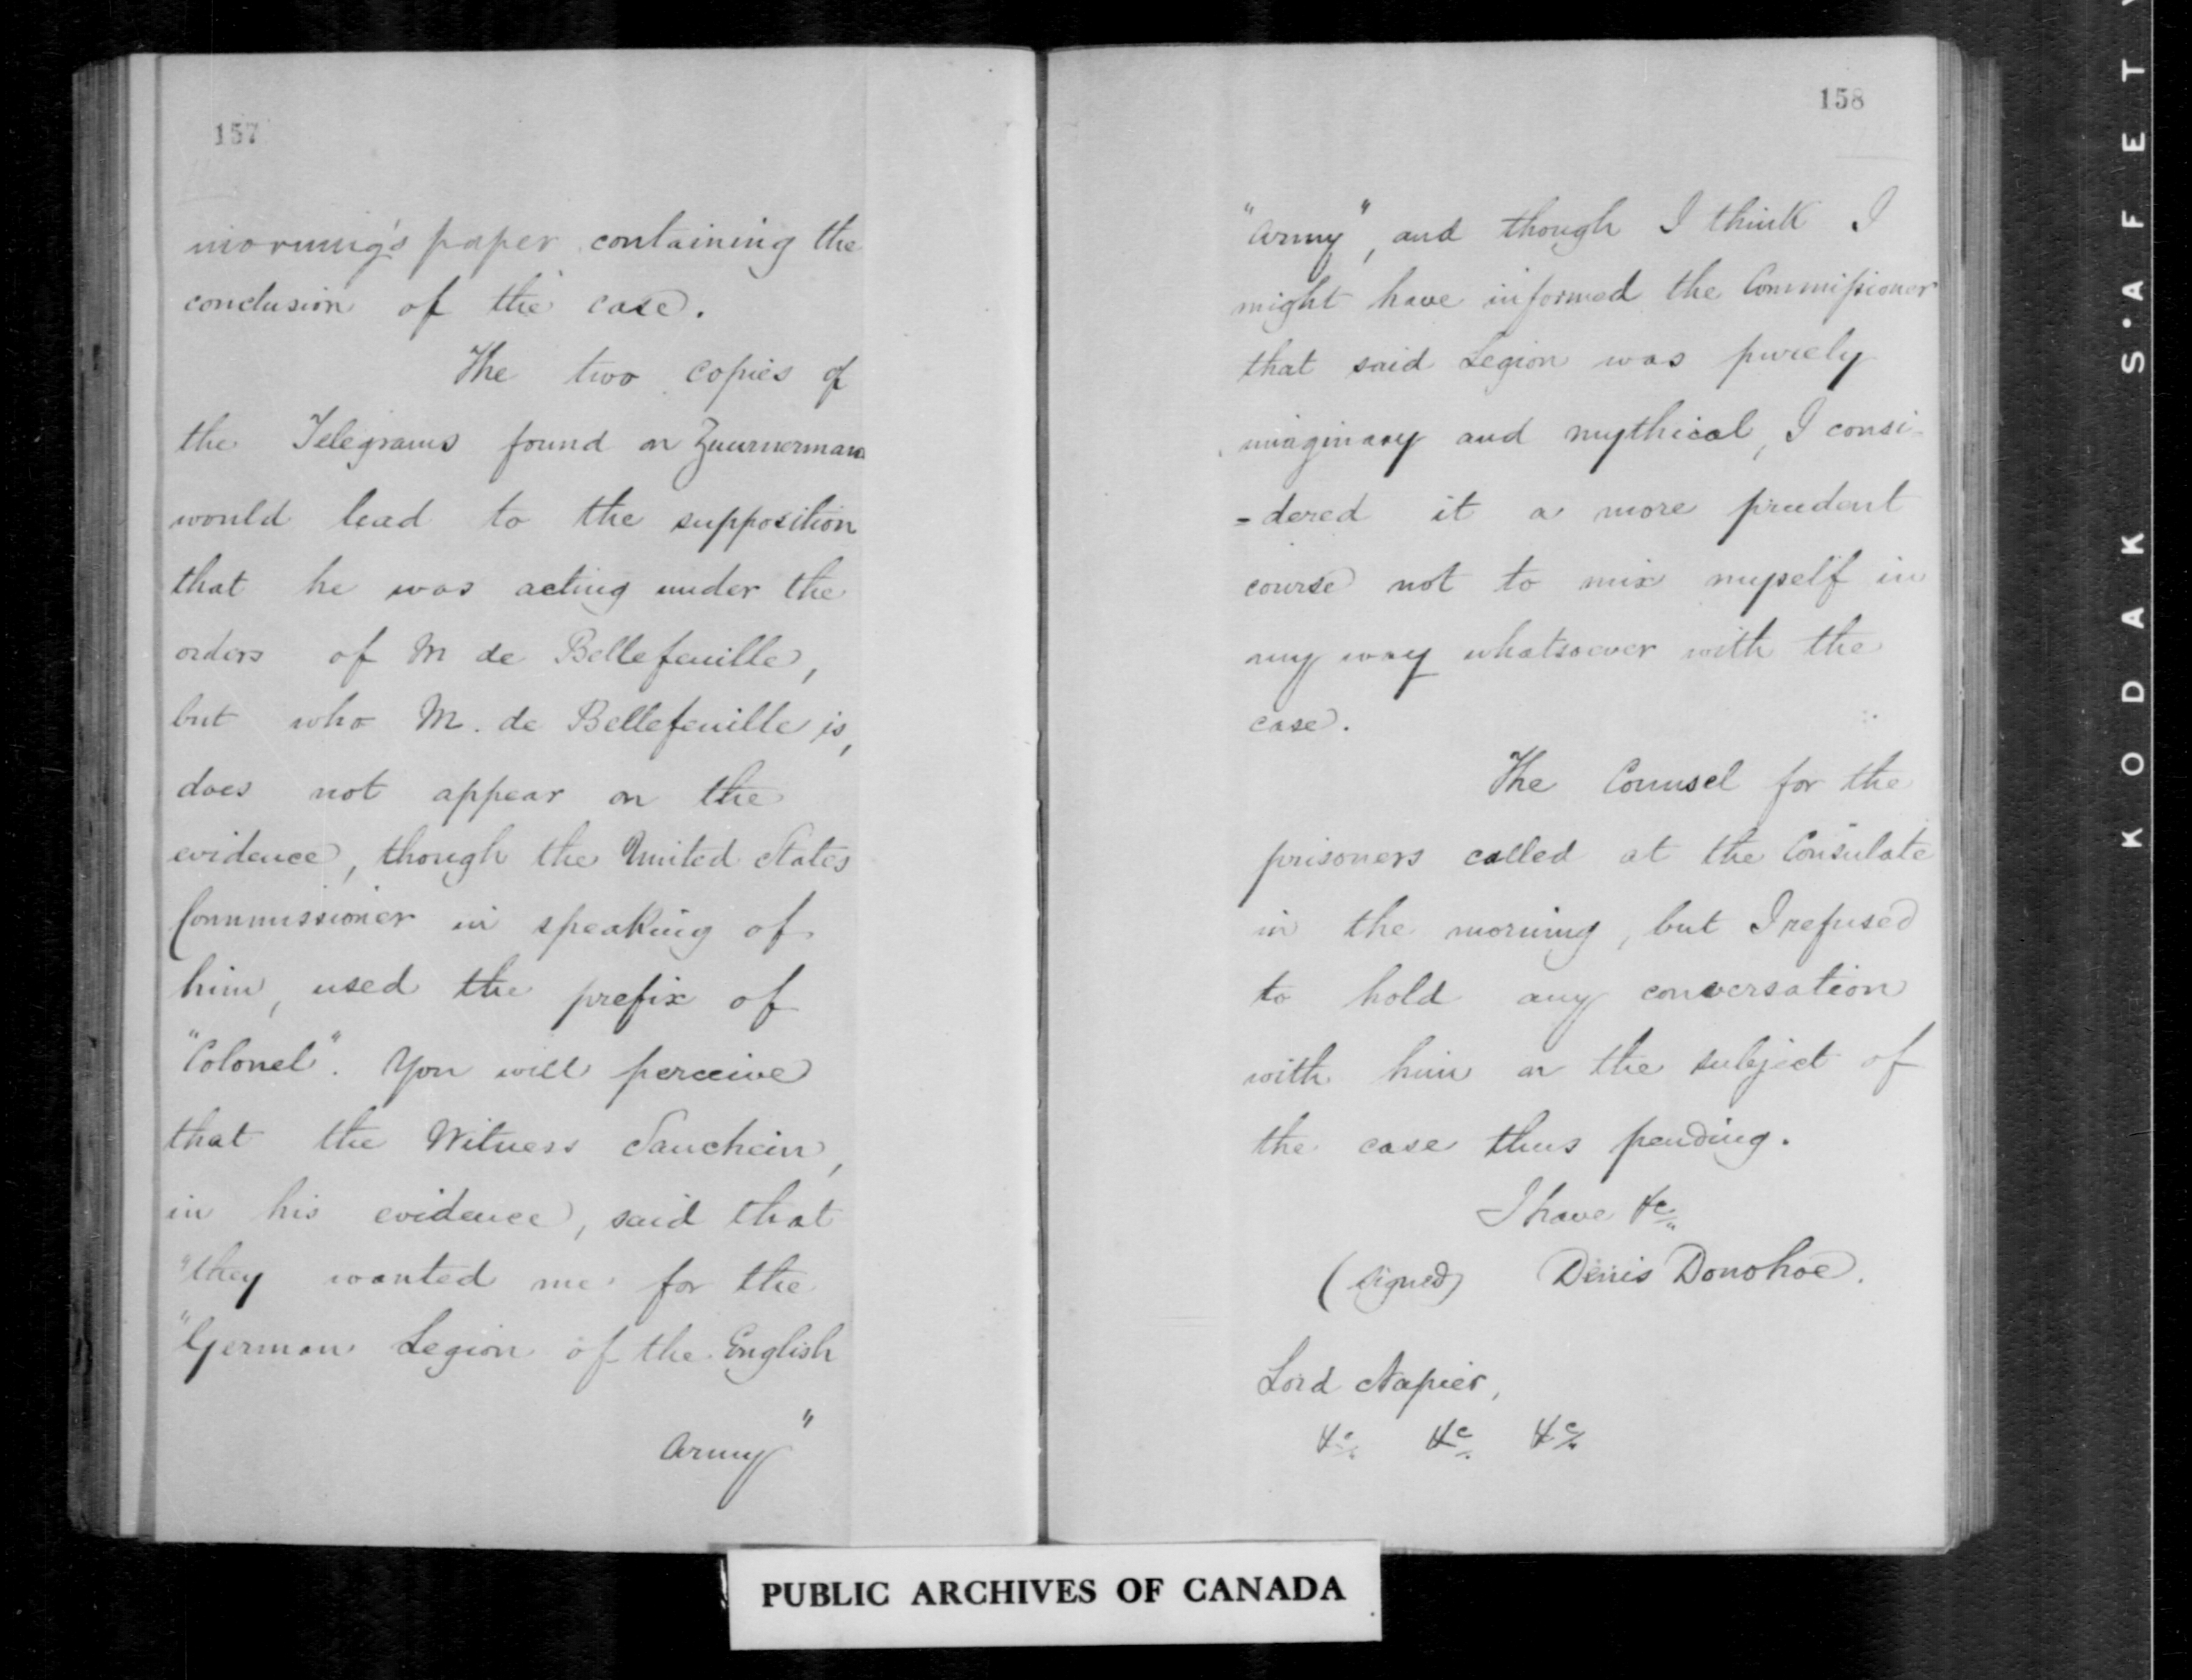 157
morning's paper containing the
conclusion of the case.
The two copies of
the Telegrams found on Zimmerman
would lead to the supposition
that he was acting under the
orders of M de Bellefeuille,
but who M. de Bellefeuille is,
does not appear on the
evidence, though the United States
Commissioner in speaking of
him, used the prefix of
"Colonel". You will perceive
that the Witness Sanchein,
in his evidence, said that
"they wanted me for the
"German Legion of the English
Army"
158
"Army", and though I think I
might have informed the Commissioner
that said Legion was purely
imaginary and mythical, I consi-
-dered it a more prudent
course not to mix myself in
any way whatsoever with the
case.
The Counsel for the
prisoners called at the Consulate
in the morning, but I refused
to hold any conversation
with him on the subject of
the case thus pending.
I have &c
(signed) Denis Donohoe.
Lord Napier,
&c &c &c
PUBLIC ARCHIVES OF CANADA
KODAK S·AFETY